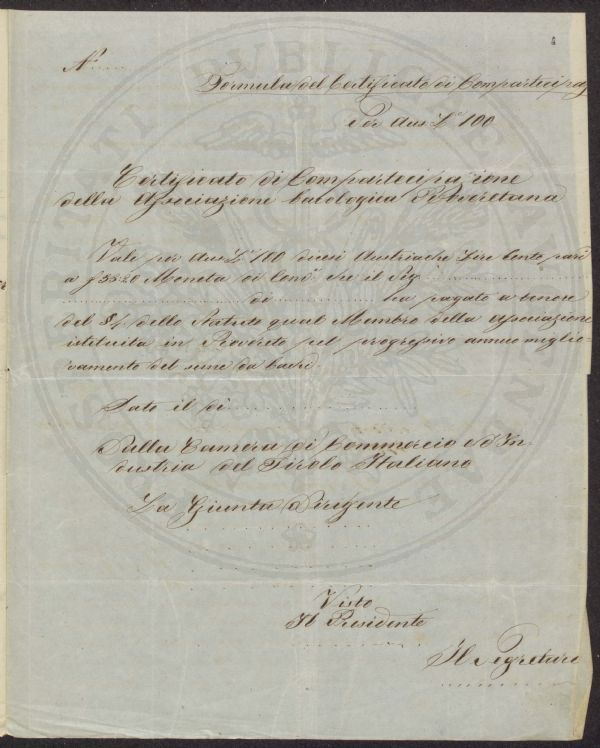 4
N°.....
Formula del Certificato di Compartecipaz
Per Aus. L. 100
Certificato di Compartecipazione
della Associazione bacologica Roveretana
Vale per Aus. L. 100 dicesi Austriache Lire Cento pari
a f 33:20 Moneta di Conv. che il Sig.
di ha pagato a tenore
del § 4 dello Statuto qual Membro della Associazione
istituita in Rovereto pel progressivo annuo miglio-
ramento del seme da bachi.
Dato il di
Dalla Camera di Commercio e d'In-
dustria del Tirolo Italiano
La Giunta Dirigente
Visto
Il Presidente
Il Segretario